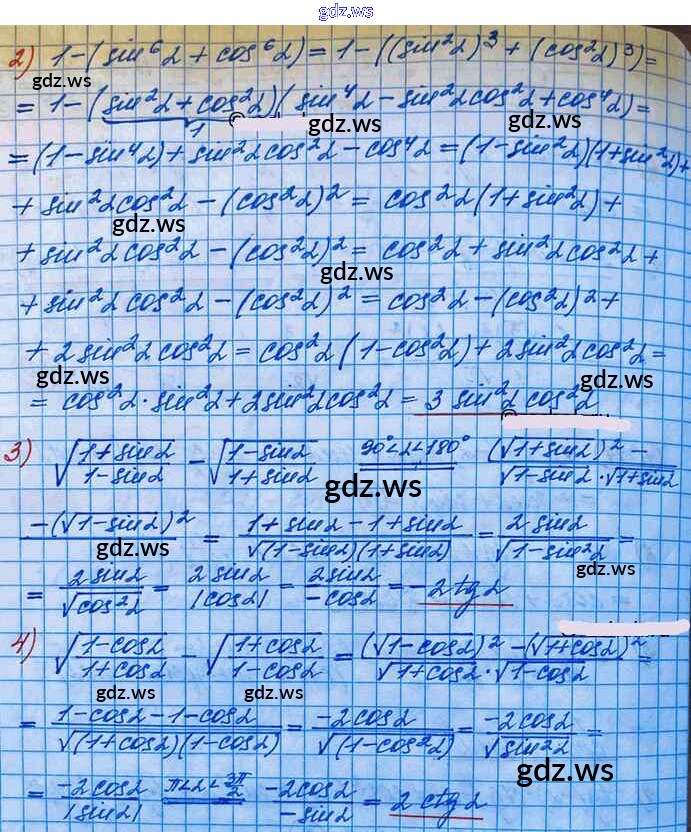 gdz.ws
2) 1-(sin⁶α + cos⁶α) = 1-((sin²α)³ + (cos²α)³) =
gdz.ws
= 1-(sin²α + cos²α)(sin⁴α - sin²α cos²α + cos⁴α) =
1
gdz.ws gdz.ws
= (1-sin⁴α) + sin²α cos²α - cos⁴α = (1-sin²α)(1+sin²α) +
+ sin²α cos²α - (cos²α)² = cos²α (1+sin²α) +
gdz.ws
+ sin²α cos²α - (cos²α)² = cos²α + sin²α cos²α +
gdz.ws
+ sin²α cos²α - (cos²α)² = cos²α - (cos²α)² +
+ 2 sin²α cos²α = cos²α (1-cos²α) + 2 sin²α cos²α =
gdz.ws gdz.ws
= cos²α · sin²α + 2 sin²α cos²α = 3 sin²α cos²α
3) √((1+sinα)/(1-sinα)) - √((1-sinα)/(1+sinα)) = 90°<α<180° = ((√(1+sinα))² -)/(√(1-sinα) · √(1+sinα))
gdz.ws
(-(√(1-sinα))²)/ = (1+sinα-1+sinα)/√((1-sinα)(1+sinα)) = 2sinα/√(1-sin²α) =
gdz.ws gdz.ws
= 2sinα/√(cos²α) = 2sinα/|cosα| = 2sinα/(-cosα) = -2tgα
gdz.ws
4) √((1-cosα)/(1+cosα)) - √((1+cosα)/(1-cosα)) = ((√(1-cosα))² - (√(1+cosα))²)/(√(1+cosα) · √(1-cosα)) =
gdz.ws gdz.ws
= (1-cosα-1-cosα)/√((1+cosα)(1-cosα)) = -2cosα/√(1-cos²α) = -2cosα/√(sin²α) =
gdz.ws
= -2cosα/|sinα| = π<α<3π/2 = -2cosα/(-sinα) = 2ctgα
gdz.ws